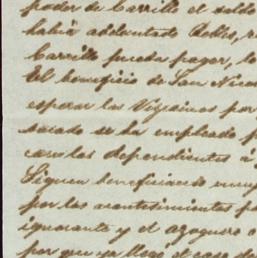 poder de Carrillo el saldo
había adelantado Robles, r
Carrillo pueda pagar, lo
El beneficio de San Nico
esperar las Virginias por
sacado se ha empleado p
can los dependientes á
Siguen beneficiando
por los acontecimientos p
ignorante y el azoguero
por que ya llegó el caso de